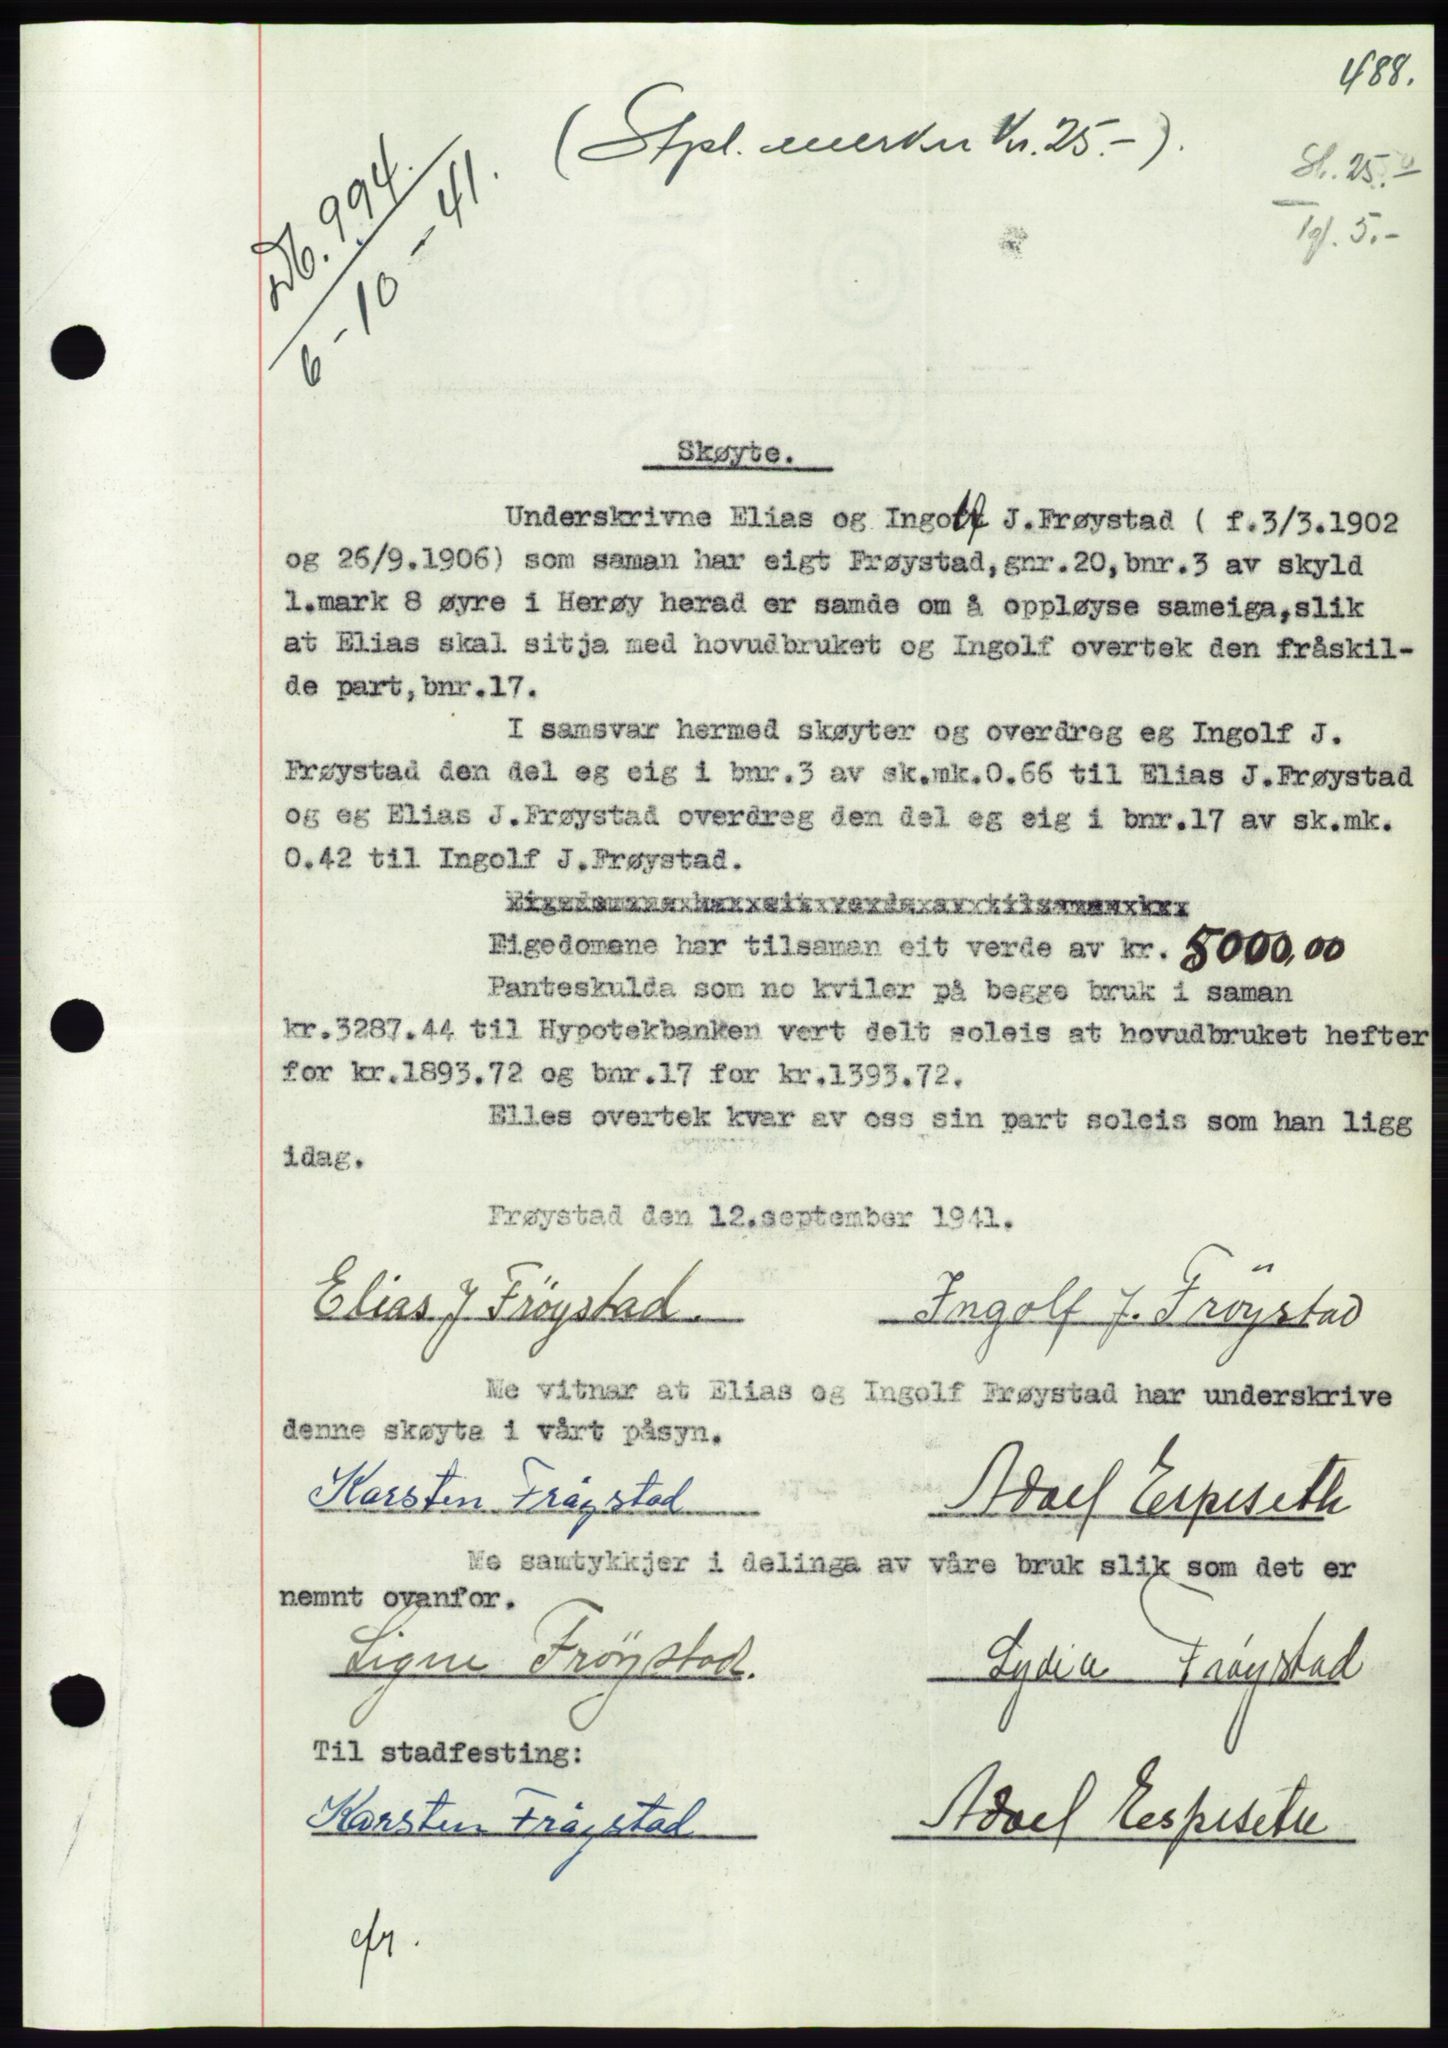 488.
(Stpl. merker Kr. 25.-).
St. 25.-
Tgl. 5.-
Db. 994.
6-10-41.
Skøyte.
Underskrivne Elias og Ingolf J.Frøystad ( f.3/3.1902
og 26/9.1906) som saman har eigt Frøystad,gnr.20,bnr.3 av skyld
1.mark 8 øyre i Herøy herad er samde om å oppløyse sameiga,slik
at Elias skal sitja med hovudbruket og Ingolf overtek den fråskil-
de part,bnr.17.
I samsvar hermed skøyter og overdreg eg Ingolf J.
Frøystad den del eg eig i bnr.3 av sk.mk.0.66 til Elias J.Frøystad
og eg Elias J.Frøystad overdreg den del eg eig i bnr.17 av sk.mk.
0.42 til Ingolf J.Frøystad.
Eigedomane har tilsaman eit verde av kr. 5000,00
Panteskulda som no kviler på begge bruk i saman
kr.3287.44 til Hypotekbanken vert delt soleis at hovudbruket hefter
for kr.1893.72 og bnr.17 for kr.1393.72.
Elles overtek kvar av oss sin part soleis som han ligg
idag.
Frøystad den 12.september 1941.
Elias J Fröystad. Ingolf J. Fröystad
Me vitnar at Elias og Ingolf Frøystad har underskrive
denne skøyta i vårt påsyn.
Karsten Frøystad Adolf Espeseth
Me samtykkjer i delinga av våre bruk slik som det er
nemnt ovanfor.
Signe Fröystad. Lydia Frøystad
Til stadfesting:
Karsten Frøystad Adolf Espeseth